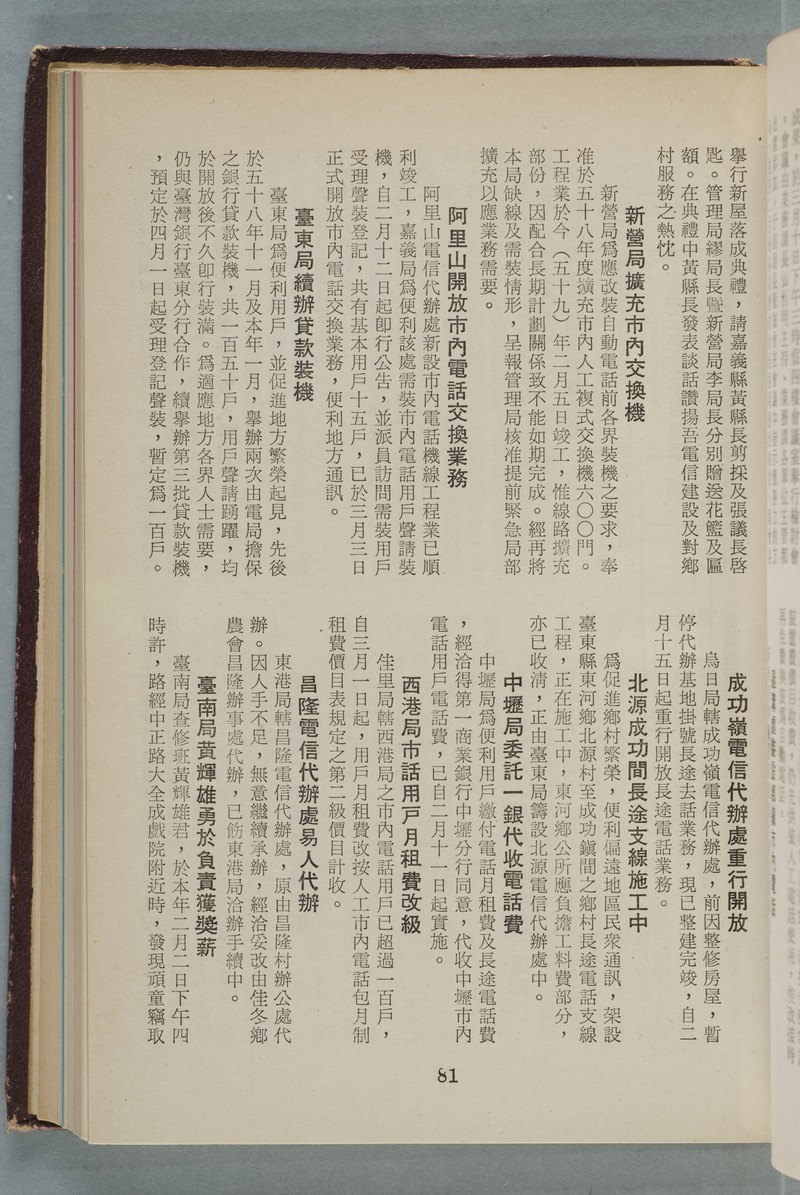 舉行新屋落成典禮，請嘉義縣黃縣長剪採及張議長啓
匙。管理局繆局長暨新營局李局長分別贈送花籃及匾
額。在典禮中黃縣長發表談話讚揚吾電信建設及對鄉
村服務之熱忱。
新營局擴充市內交換機
新營局爲應改裝自動電話前各界裝機之要求，奉
准於五十八年度擴充市內人工複式交換機六〇〇門。
工程業於今（五十九）年二月五日竣工，惟線路擴充
部份，因配合長期計劃關係致不能如期完成。經再將
本局缺線及需裝情形，呈報管理局核准提前緊急局部
擴充以應業務需要。
阿里山開放市內電話交換業務
阿里山電信代辦處新設市內電話機線工程業已順
利竣工，嘉義局爲便利該處需裝市內電話用戶聲請裝
機，自二月十二日起卽行公告，並派員訪問需裝用戶
受理聲裝登記，共有基本用戶十五戶，已於三月三日
正式開放市內電話交換業務，便利地方通訊。
臺東局續辦貸款裝機
臺東局爲便利用戶，並促進地方繁榮起見，先後
於五十八年十一月及本年一月，舉辦兩次由電局擔保
之銀行貸款裝機，共一百五十戶，用戶聲請踴躍，均
於開放後不久卽行裝滿。爲適應地方各界人士需要，
仍與臺灣銀行臺東分行合作，續舉辦第三批貸款裝機
，預定於四月一日起受理登記聲裝，暫定爲一百戶。
成功嶺電信代辦處重行開放
烏日局轄成功嶺電信代辦處，前因整修房屋，暫
停代辦基地掛號長途去話業務，現已整建完竣，自二
月十五日起重行開放長途電話業務。
北源成功間長途支線施工中
爲促進鄉村繁榮，便利偏遠地區民衆通訊，架設
臺東縣東河鄉北源村至成功鎭間之鄉村長途電話支線
工程，正在施工中，東河鄉公所應負擔工料費部分，
亦已收淸，正由臺東局籌設北源電信代辦處中。
中壢局委託一銀代收電話費
中壢局爲便利用戶繳付電話月租費及長途電話費
，經洽得第一商業銀行中壢分行同意，代收中壢市內
電話用戶電話費，已自二月十一日起實施。
西港局市話用戶月租費改級
佳里局轄西港局之市內電話用戶已超過一百戶，
自三月一日起，用戶月租費改按人工市內電話包月制
租費價目表規定之第二級價目計收。
昌隆電信代辦處易人代辦
東港局轄昌隆電信代辦處，原由昌隆村辦公處代
辦。因人手不足，無意繼續承辦，經洽妥改由佳冬鄉
農會昌隆辦事處代辦，已飭東港局洽辦手續中。
臺南局黃輝雄勇於負責獲獎薪
臺南局查修班黃輝雄君，於本年二月二日下午四
時許，路經中正路大全成戲院附近時，發現頑童竊取
81